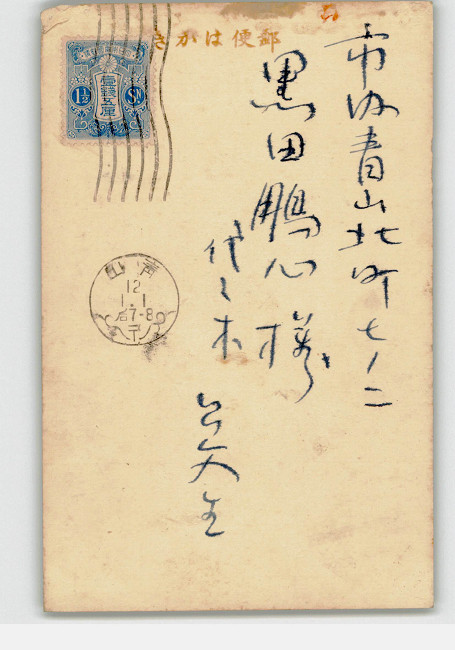 きかは便郵
市内青山北町七ノ二
黒田鵬心様
代々木
生
1½ 壹錢五厘 SN
青山
12
1.1
后7-8